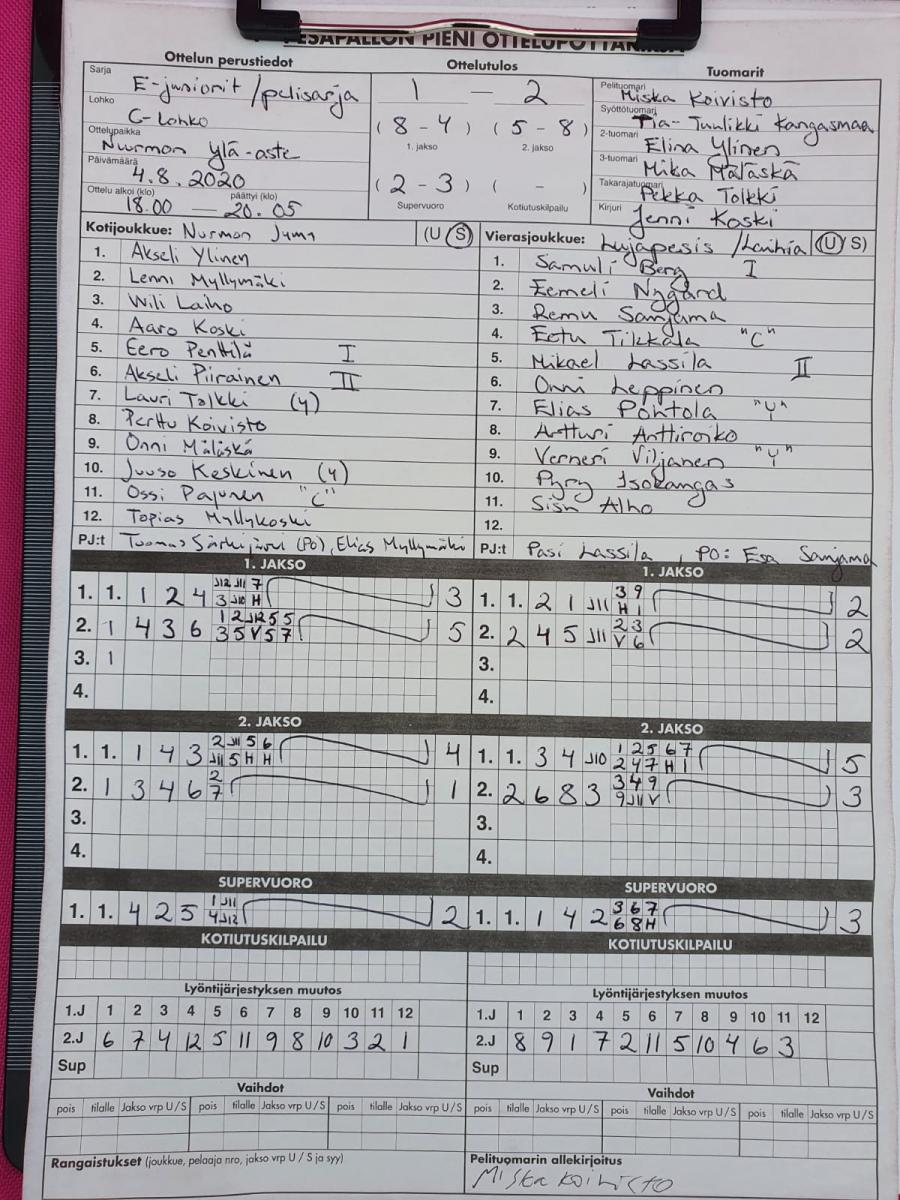 PESÄPALLON PIENI OTTELUPÖYTÄKIRJA
Ottelun perustiedot
Sarja E-juniorit /pelisarja
Lohko C-Lohko
Ottelupaikka Nurmon Ylä-aste
Päivämäärä 4.8.2020
Ottelu alkoi (klo) päättyi (klo)
18.00 — 20.05
Ottelutulos
1 — 2
(8 - 4) (5 - 8)
1. jakso 2. jakso
(2 - 3) ( - )
Supervuoro Kotiutuskilpailu
Tuomarit
Pelituomari Miska Koivisto
Syöttötuomari Tia-Tuulikki Kangasmaa
2-tuomari Elina Ylinen
3-tuomari Mika Mäläskä
Takarajatuomari Pekka Tolkki
Kirjuri Jenni Koski
Kotijoukkue: Nurmon Jymy (U/S)
1. Akseli Ylinen
2. Lenni Myllymäki
3. Wili Laiho
4. Aaro Koski
5. Eero Penttilä I
6. Akseli Piirainen II
7. Lauri Tolkki (Y)
8. Perttu Koivisto
9. Onni Mäläskä
10. Juuso Keskinen (Y)
11. Ossi Pajunen "C"
12. Topias Myllykoski
PJ:t Tuomas Särkijärvi (PO), Elias Myllymäki
Vierasjoukkue: Lujapesis /Laihia (U/S)
1. Samuli Berg I
2. Eemeli Nygård
3. Remu Sanjama
4. Eetu Tikkala "C"
5. Mikael Lassila II
6. Onni Leppinen
7. Elias Pohtola "Y"
8. Artturi Anttiroiko
9. Verneri Viljanen "Y"
10. Pyry Isokangas
11. Sisu Alho
12.
PJ:t Pasi Lassila, PO: Esa Sanjama
1. JAKSO
1. 1. 1 2 4 J12 J11 7 3
3 J10 H
2. 1 4 3 6 1 2 J12 5 5 5
3 5 V 5 7
3. 1
4.
2. JAKSO
1. 1. 1 4 3 2 J11 5 6 4
J11 5 H H
2. 1 3 4 6 2 1
7
3.
4.
SUPERVUORO
1. 1. 4 2 5 1 J11 2
4 J12
KOTIUTUSKILPAILU
Lyöntijärjestyksen muutos
1.J 1 2 3 4 5 6 7 8 9 10 11 12
2.J 6 7 4 12 5 11 9 8 10 3 2 1
Sup
Vaihdot
pois tilalle Jakso vrp U / S pois tilalle Jakso vrp U / S pois tilalle Jakso vrp U / S
Rangaistukset (joukkue, pelaaja nro, jakso vrp U / S ja syy)
1. JAKSO
1. 1. 2 1 J11 3 9 2
H 1
2. 2 4 5 J11 2 3 2
V 6
3.
4.
2. JAKSO
1. 1. 3 4 J10 1 2 5 6 7 5
2 4 7 H 1
2. 2 6 8 3 3 4 9 3
9 J11 V
3.
4.
SUPERVUORO
1. 1. 1 4 2 3 6 7 3
6 8 H
KOTIUTUSKILPAILU
Lyöntijärjestyksen muutos
1.J 1 2 3 4 5 6 7 8 9 10 11 12
2.J 8 9 1 7 2 11 5 10 4 6 3
Sup
Vaihdot
pois tilalle Jakso vrp U / S pois tilalle Jakso vrp U / S pois tilalle Jakso vrp U / S
Pelituomarin allekirjoitus
Miska Koivisto